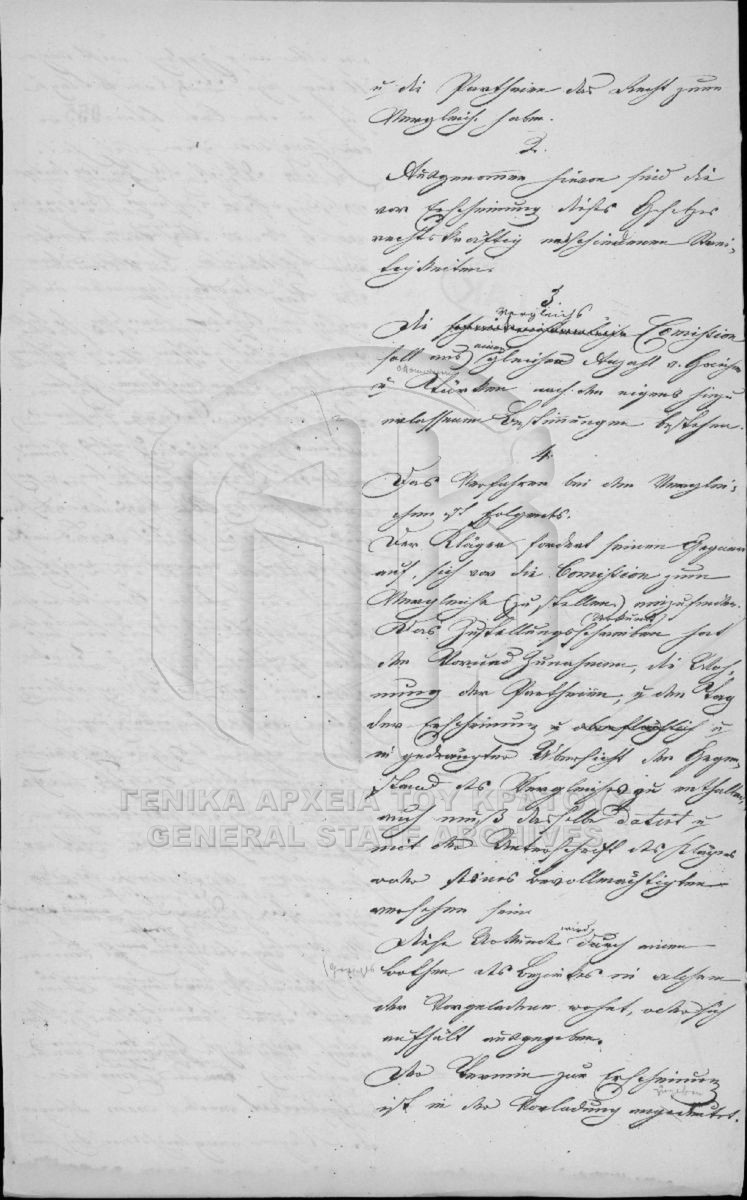 u die Partheien das Recht zum
Vergleich haben.
2.
Ausgenommen hievon sind die
vor Erscheinung dieses Gesetzes
rechtskräftig entschiedenen Strei-
tigkeiten.
3
Vergleichs
Die Comission
soll aus einer gleichen Anzahl v. Griechen
u Türken nach den eigens hiezu
erlassenen Bestimmungen bestehen.
4.
Das Verfahren bei den Verglei-
chen ist folgendes.
Der Kläger fordert seinen Gegner
auf, sich vor die Comission zum
Vergleiche (zu stellen) einzufinden.
(Urkunde)
Das Zustellungsschreiben hat
den Vor und Zunahmen, die Woh-
nung der Partheien, u den Tag
der Erscheinung u oberflächlich u
in gedrängter Übersicht den Gegen-
stand des Vergleiches zu enthalten,
auch muß dasselbe datirt u
mit der Unterschrift des Klägers
oder seines Bevollmächtigten
versehen sein.
Diese Urkunde wird durch einen
Bothen des Bezirkes in welchem
der Vorgeladene wohnt, oder sich
aufhält ausgegeben.
Der Termin zur Erscheinung
ist in der Vorladung angedeutet.
ΓΕΝΙΚΑ ΑΡΧΕΙΑ ΤΟΥ ΚΡΑΤΟΥΣ
GENERAL STATE ARCHIVES